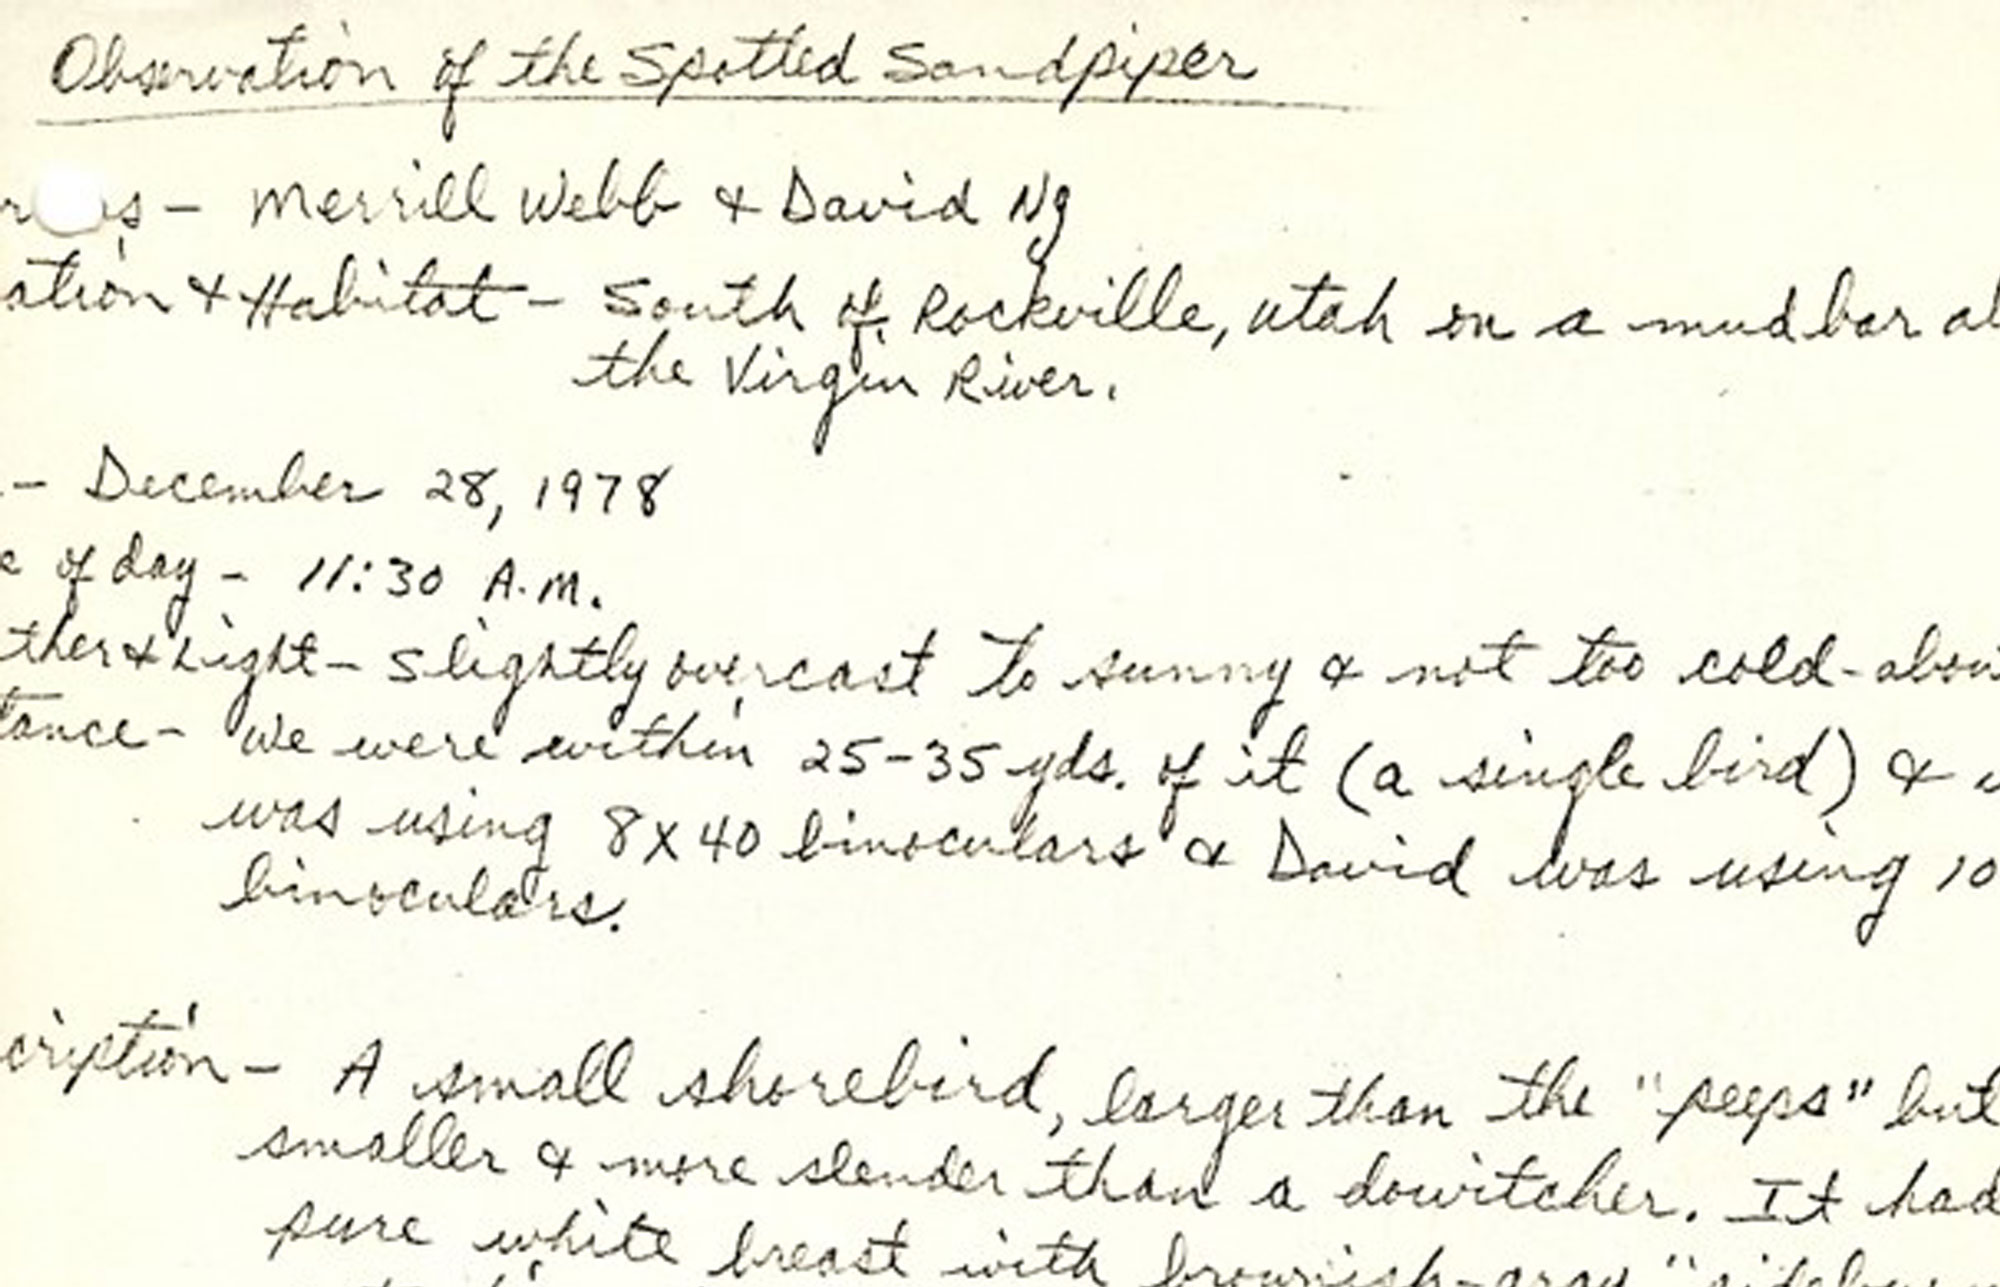 Observation of the Spotted Sandpiper
s - Merrill Webb & David Ng
ation & Habitat - South of Rockville, Utah on a mud bar al
the Virgin River.
- December 28, 1978
e of day - 11:30 A.M.
ther & Light - Slightly overcast to sunny & not too cold - abou
tance - We were within 25-35 yds. of it (a single bird) &
was using 8x40 binoculars & David was using 10
binoculars.
cription - A small shorebird, larger than the "peeps" but
smaller & more slender than a dowitcher. It had
pure white breast with brownish-gray